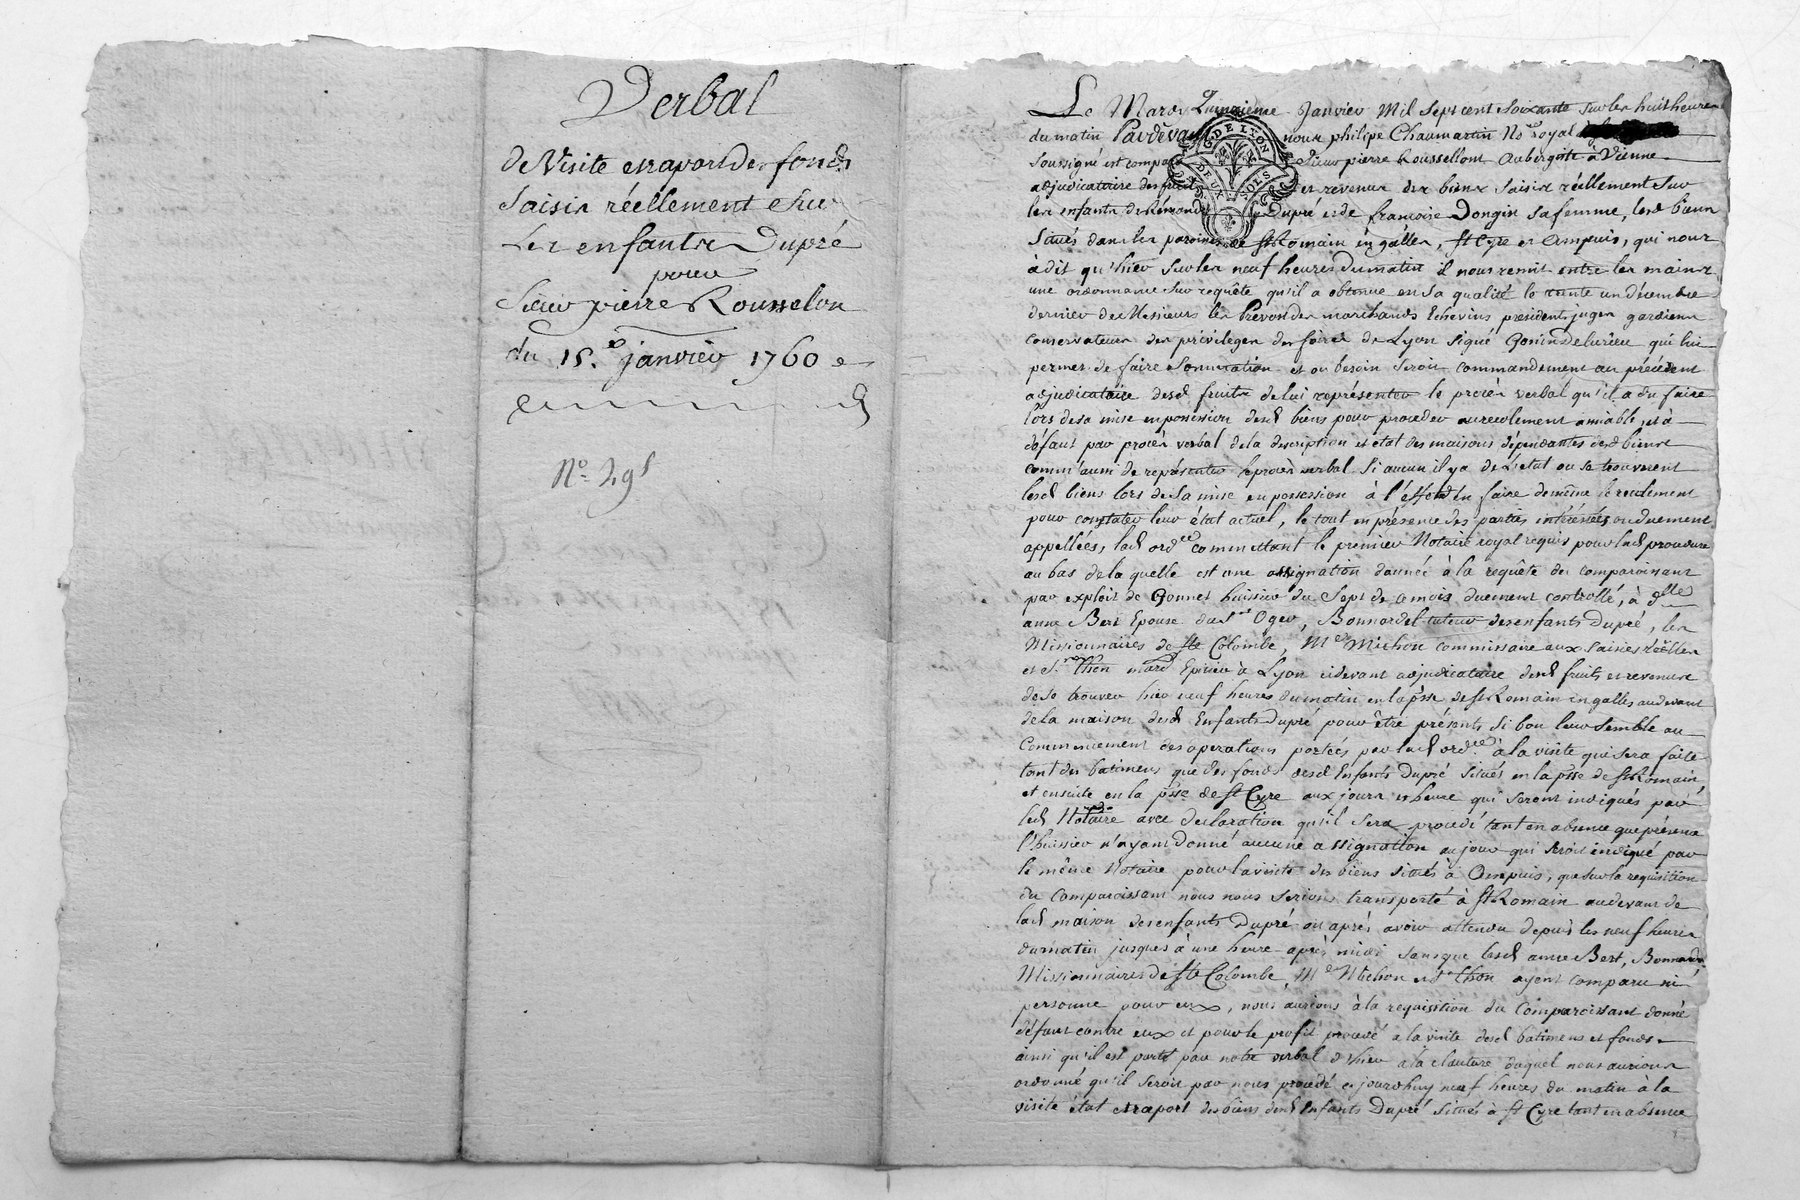 Verbal
de Visite et raport des fonds
Saisis réellement sur
Les enfants Dupré
pour
Sieur pierre Rousselon
du 15.e janvier 1760
No. 295
Le Mardy Quinzieme Janvier Mil Sept cent Soixante sur les huit heures
du matin Pardevant nous philipe Chaumartin No.re royal
soussigné est comparu Sieur pierre Roussellont Aubergiste à Vienne
adjudicataire des fruits et revenus des biens saisis réellement sur
les enfants de Rémond Dupré et de françoise Dongin sa femme, lesd biens
situés dans les paroisses de St Romain en galles, St Cyre et Ampuis, qui nous
à dit qu'hier sur les neuf heures du matin il nous remit entre les mains
une ordonnance sur requête qu'il a obtenue en sa qualité le trente un décembre
dernier de Messieurs les Prevost des marchands Echevins presidents juges gardiens
conservateurs des privileges des foires de Lyon signé Gonin de lurieu qui lui
permet de faire Sommation et où besoin seroit commandement au précédent
adjudicataire desd fruits de lui représenter le procès verbal qu'il a du faire
lors de sa mise en possession desd biens pour proceder au reculement amiable, et à
défaut par procès verbal de la description et état des maisons dépendantes desd biens
comm'aussi de représenter le procès verbal si aucun il y a de l'état ou se trouverent
lesd biens lors de sa mise en possession à l'effet d'en faire de même le reculement
pour constater leur état actuel, le tout en présence des parties intéréssées ou duement
appellées, lad ord.ce commettant le premier Notaire royal requis pour lad procedure
au bas de la quelle est une assignation donnée à la requête du comparoissant
par exploit de Gonnet huissier du Sept de ce mois duement controllé, à d.lle
anne Bert Epouse du S.r Oger, Bonnardel tuteur des enfants Dupré, les
Missionnaires de Ste Colombe, M.e Michon commissaire aux saisies réelles
et S.r Thon marc.d Epicier à Lyon cidevant adjudicataire desd fruits et revenus
de se trouver hier neuf heures du matin en la p.sse de St Romain en galles au devant
de la maison desd Enfants Dupré pour être présents si bon leur semble au
Commencement des operations portées par lad ord.ce à la visite qui sera faite
tant des batimens que des fonds desd Enfants Dupré situés en la p.sse de St Romain
et ensuite en la p.sse de St Cyre aux jours et heure qui seront indiqués par
led Notaire avec declaration qu'il sera procedé tant en absence que présence
l'huissier n'ayant donné aucune assignation au jour qui seroit indiqué par
le même Notaire pour la visite des biens situés à Ampuis, que sur la requisition
du comparoissant nous nous serions transporté à St Romain au devant de
lad maison des enfants Dupré où après avoir attendu depuis les neuf heures
du matin jusques à une heure après midi sans que lesd anne Bert, Bonnardel
Missionnaires de Ste Colombe, M.e Michon et S.r Thon ayent comparu ni
personne pour eux, nous aurions à la requisition du Comparoissant donné
défaut contre eux et pour le profit procedé à la visite desd batimens et fonds
ainsi qu'il est porté par notre verbal d'hier à la clauture duquel nous aurions
ordonné qu'il seroit par nous procedé ce jourd'huy neuf heures du matin à la
visite état et raport des biens desd Enfants Dupré situés à St Cyre tant en absence
G. DE LYON
DEUX SOLS